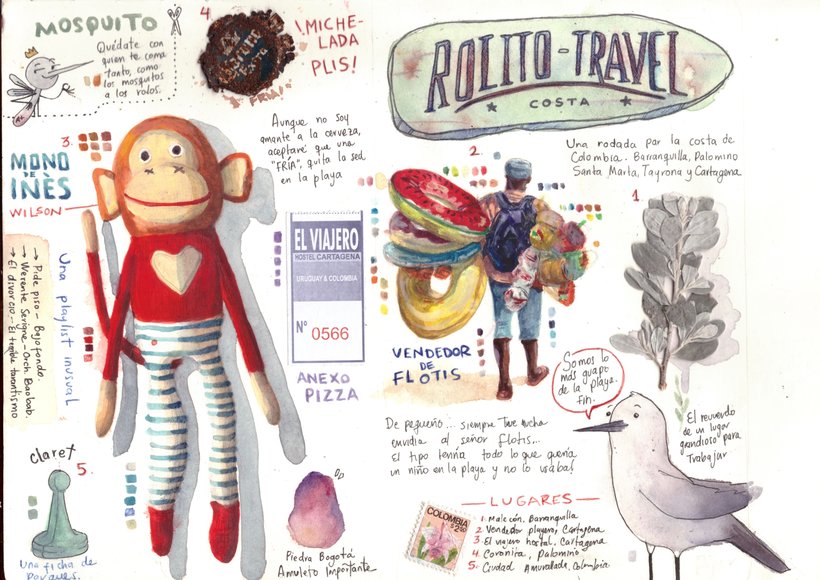 MOSQUITO
Quédate con
quien te coma
tanto, como
los mosquitos
a los rolos.
4
FRÍA!
¡MICHE-
LADA
PLIS!
Aunque no soy
amante a la cerveza,
aceptaré que una
"FRÍA", quita la sed
en la playa
ROLITO-TRAVEL
COSTA
Una rodada por la costa de
Colombia. Barranquilla, Palomino
Santa Marta, Tayrona y Cartagena
3.
MONO
DE
INÈS
WILSON
Una playlist inusual
→ Pide piso - Bajofondo
→ Werente Serigne - Orch. Baobab.
→ El divorcio - El terrible tarantismo
EL VIAJERO
HOSTEL CARTAGENA
URUGUAY & COLOMBIA
Nº 0566
ANEXO
PIZZA
2.
VENDEDOR
DE
FLOTIS
1.
Somos lo
más guapo
de la playa.
fin.
El recuerdo
de un lugar
grandioso para
Trabajar
De pequeño... siempre tuve mucha
envidia al señor flotis...
El tipo tenía todo lo que quería
un niño en la playa y no lo usaba!
claret
5.
Una ficha de
parqués.
Piedra Bogotá
Amuleto Importante
COLOMBIA
LUGARES
1. Malecón, Barranquilla
2. Vendedor playero, Cartagena
3. El viajero hostal, Cartagena
4. Coronita, Palomino
5. Ciudad Amurallada, Colombia.